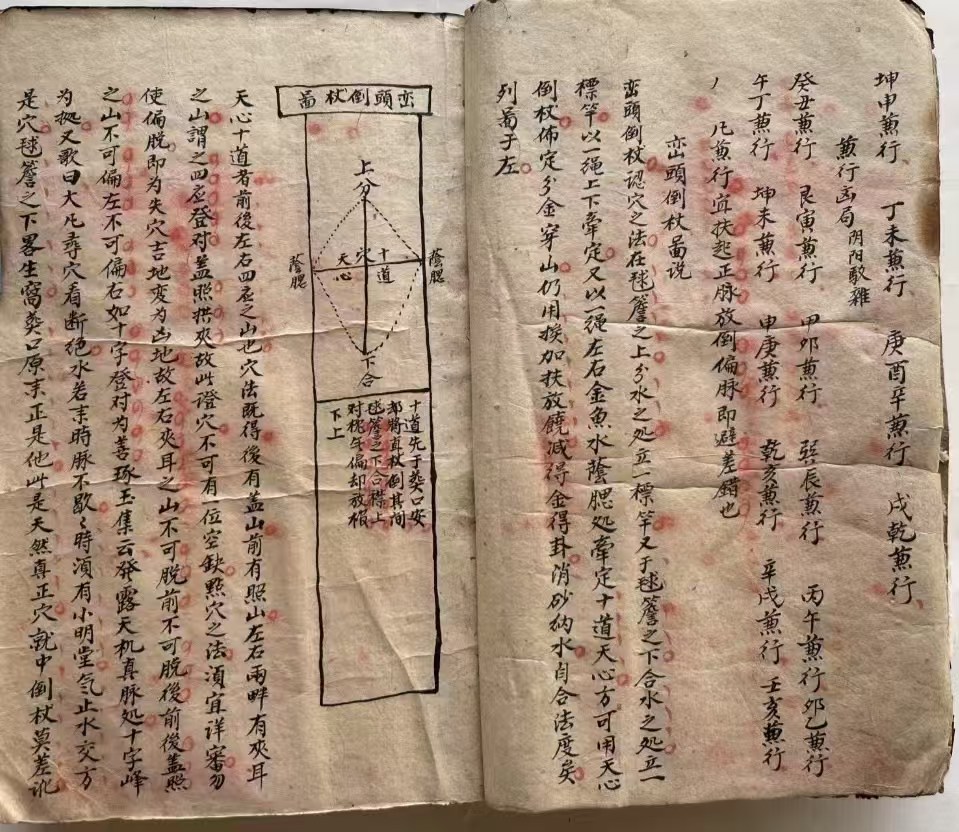 坤申兼行　丁未兼行　庚酉辛兼行　戌乾兼行
兼行凶局　阴阳駁雜
癸丑兼行　艮寅兼行　甲卯兼行　巽辰兼行　丙午兼行　卯乙兼行
午丁兼行　坤未兼行　申庚兼行　乾亥兼行　辛戌兼行　壬亥兼行
凡兼行宜扶起正脉放倒偏脉即避差錯也
峦頭倒杖啚说
峦頭倒杖認穴之法在毬簷之上分水之処立一標竿又于毬簷之下合水之処立一
標竿以一绳上下牽定又以一绳左右金魚水蔭腮処牽定十道天心方可用天心
倒杖佈定分金穿山仍用挨加扶放饒减得金得卦消砂纳水自合法度矣
列啚于左
峦頭倒杖啚
上分
穴
天心
十道
蔭腮
蔭腮
下合
十道先于葬口安
都將直杖倒其间
毬簷之下合襟上
对
下上
天心十道者前後左右四应之山也穴法既得後有盖山前有照山左右兩畔有夾耳
之山謂之四应登对盖照拱夾故此證穴不可有一位空缺點穴之法湏宜详審勿
使偏脱即为失穴吉地变为凶地故左右夾耳之山不可脱前不可脱後前後盖照
之山不可偏左不可偏右如十字登对为善琢玉集云發露天机真脉処十字峰
为拠又歌曰大凡尋穴看断绝水若来時脉不歇歇時湏有小明堂气止水交方
是穴毬簷之下畧生窩葬口原来正是他此是天然真正穴就中倒杖莫差讹